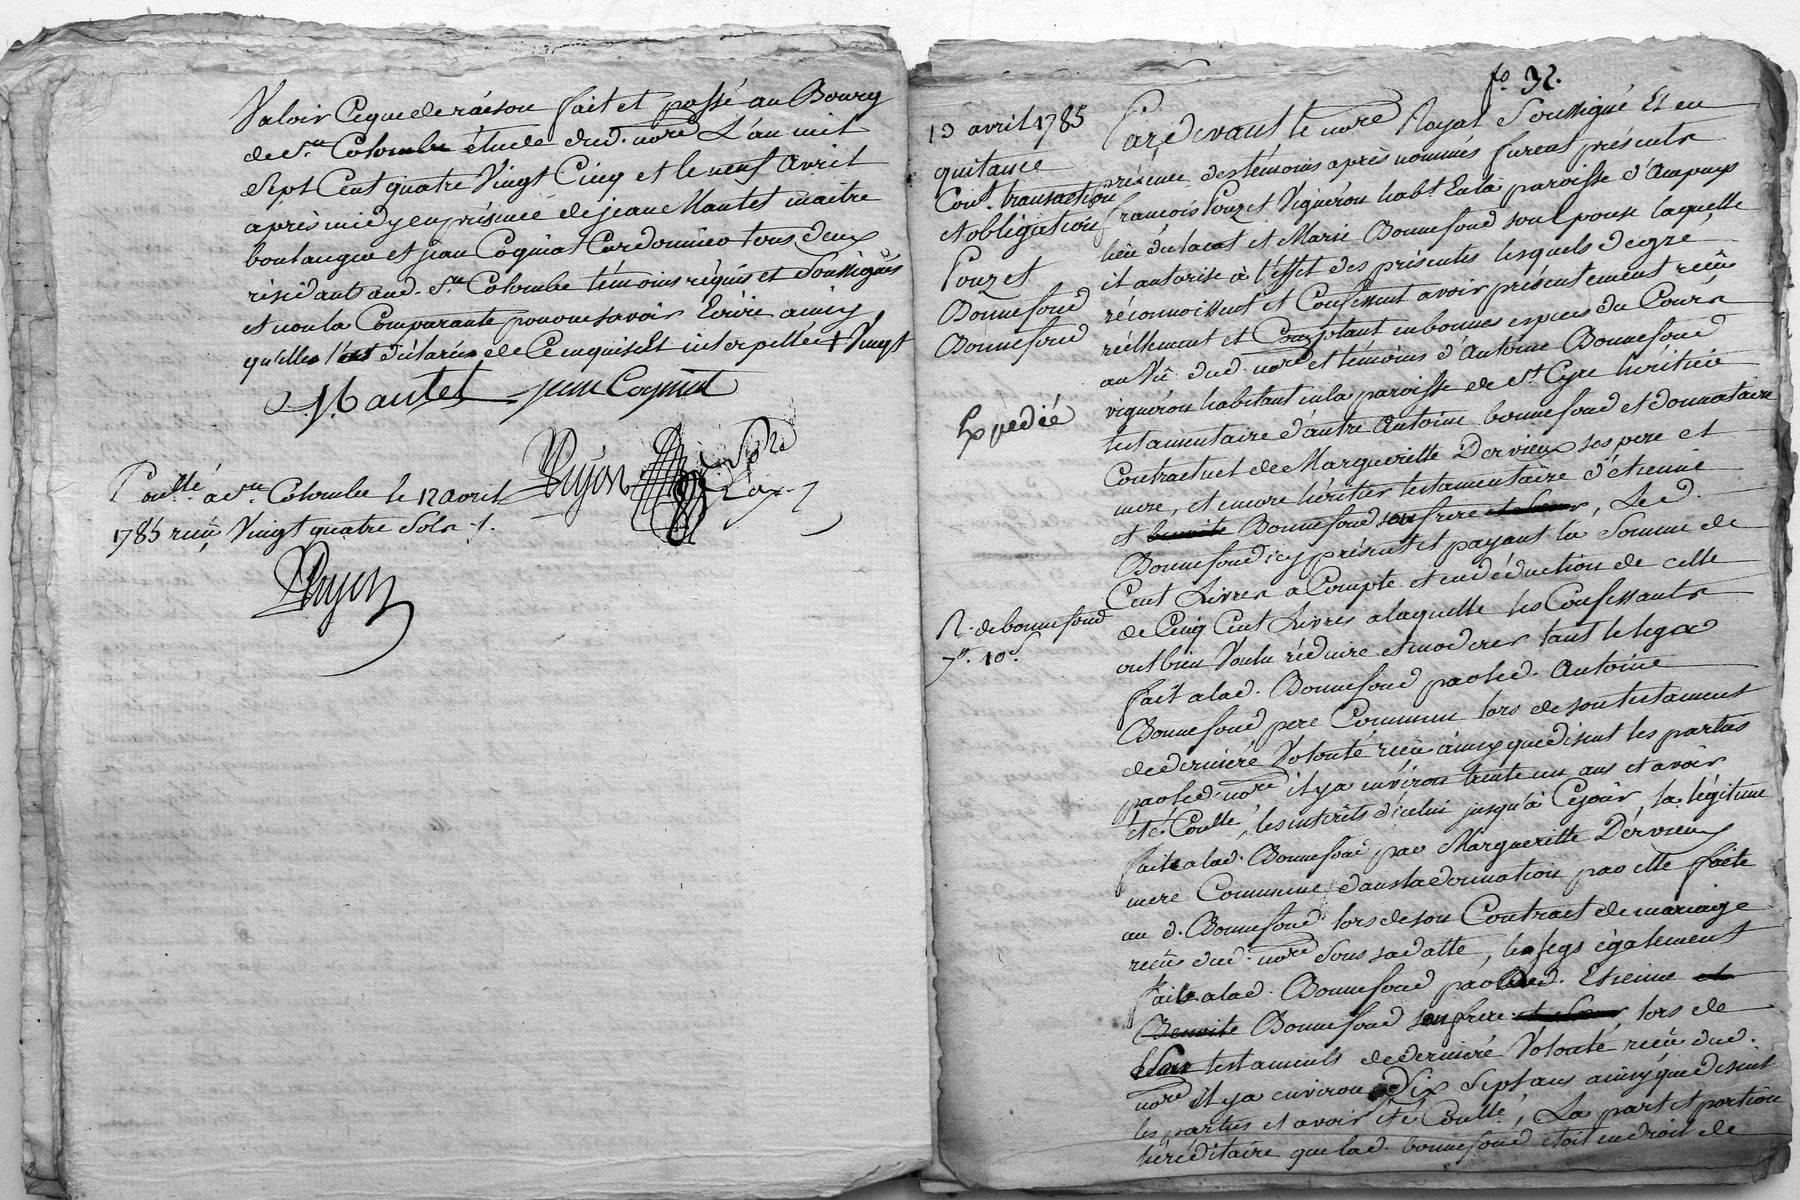 Valoir Ce que de raison fait et passé au Bourg
de Ste Colombe étude dud. nore L'an mil
Sept Cent quatre Vingt Cinq et le neuf avril
après midy en présence de jean Mantet maitre
boulanger et jean Cogniat Cordonnier tous deux
résidants aud. Ste Colombe témoins réquis et Soussignés
et non la Comparante pour ne savoir Ecrire ainsy
qu'elle l'a déclaré de Ce enquise et interpellée Vingt
Mantet jean Cogniat
Pujon nore
Conllé a Ste Colombe le 12 avril
1785 reçu Vingt quatre Sols
Pujon
fo. 32.
10 avril 1785
quitance
Cont. transaction
et obligation
Pouzet
Bonnefond
Bonnefond
Expediée
R. de bonnefond
7tt. 10s.
Pardevant le nore Royal Soussigné Et en
présence des témoins après nommés furent présents
françois Pouzet Vignéron habt. En la paroisse d'Ampuys
lieu du lacat et Marie Bonnefond son Epouse laquelle
il autorise à l'effet des présentes lesquels de gré
réconnoissent et Confessent avoir présentement reçu
réellement et Comptant en bonnes espèces du Cours
au Vû dud. nore et témoins d'Antoine Bonnefond
vignéron habitant en la paroisse de St. Cyre héritier
testamentaire d'autre Antoine bonnefond et donnataire
Contractuel de Marguerite Dervieux ses pere et
mere, et encore héritier testamentaire d'étienne
et benoite Bonnefond son frere et Soeur, Led.
Bonnefond icy présent et payant la Somme de
Cent Livres a Compte et en déduction de celle
de Cinq Cent Livres a laquelle les Confessants
ont bien Voulu réduire et moderer tant le legs
fait a lad. Bonnefond par led. Antoine
Bonnefond pere Commun lors de son testament
de derniere Volonté reçu ainsy que disent les parties
par led. nore il y a environ trente un ans et avoir
été Conllé, les intérêts d'icelui jusqu'à Cejour, la légitime
faite a lad. Bonnefond par Marguerite Dervieux
mere Commune dans la donnation par elle faite
au d. Bonnefond lors de son Contract de mariage
reçu dud. nore Sous sa datte, le legs également
fait a lad. Bonnefond par led. Etienne et
Benoite Bonnefond son frere et Soeur lors de
testaments de derniere Volonté reçu dud.
nore il y a environ Dix Sept ans ainsy que disent
les parties et avoir été Conllé, La part et portion
héréditaire que lad. bonnefond étoit en droit de